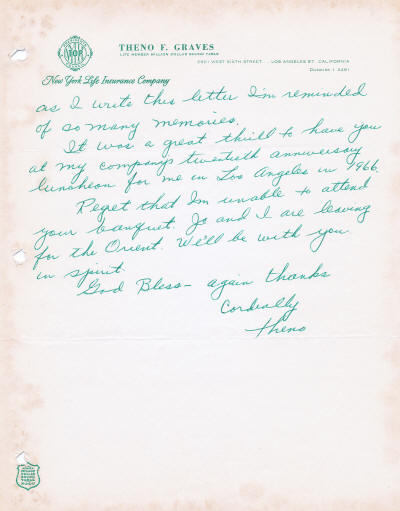 TOP
THENO F. GRAVES
LIFE MEMBER MILLION DOLLAR ROUND TABLE
WEST SIXTH STREET LOS ANGELES 57, CALIFORNIA
New York Life Insurance Company
as I write this letter I'm reminded
of so many memories.
It was a great thrill to have you
at my company's twentieth anniversary
luncheon for me in Los Angeles in 1966.
Regret that I'm unable to attend
your banquet. Jo and I are leaving
for the Orient. We'll be with you
in spirit.
God Bless — again thanks
Cordially
Theno
MILLION
DOLLAR
ROUND
TABLE